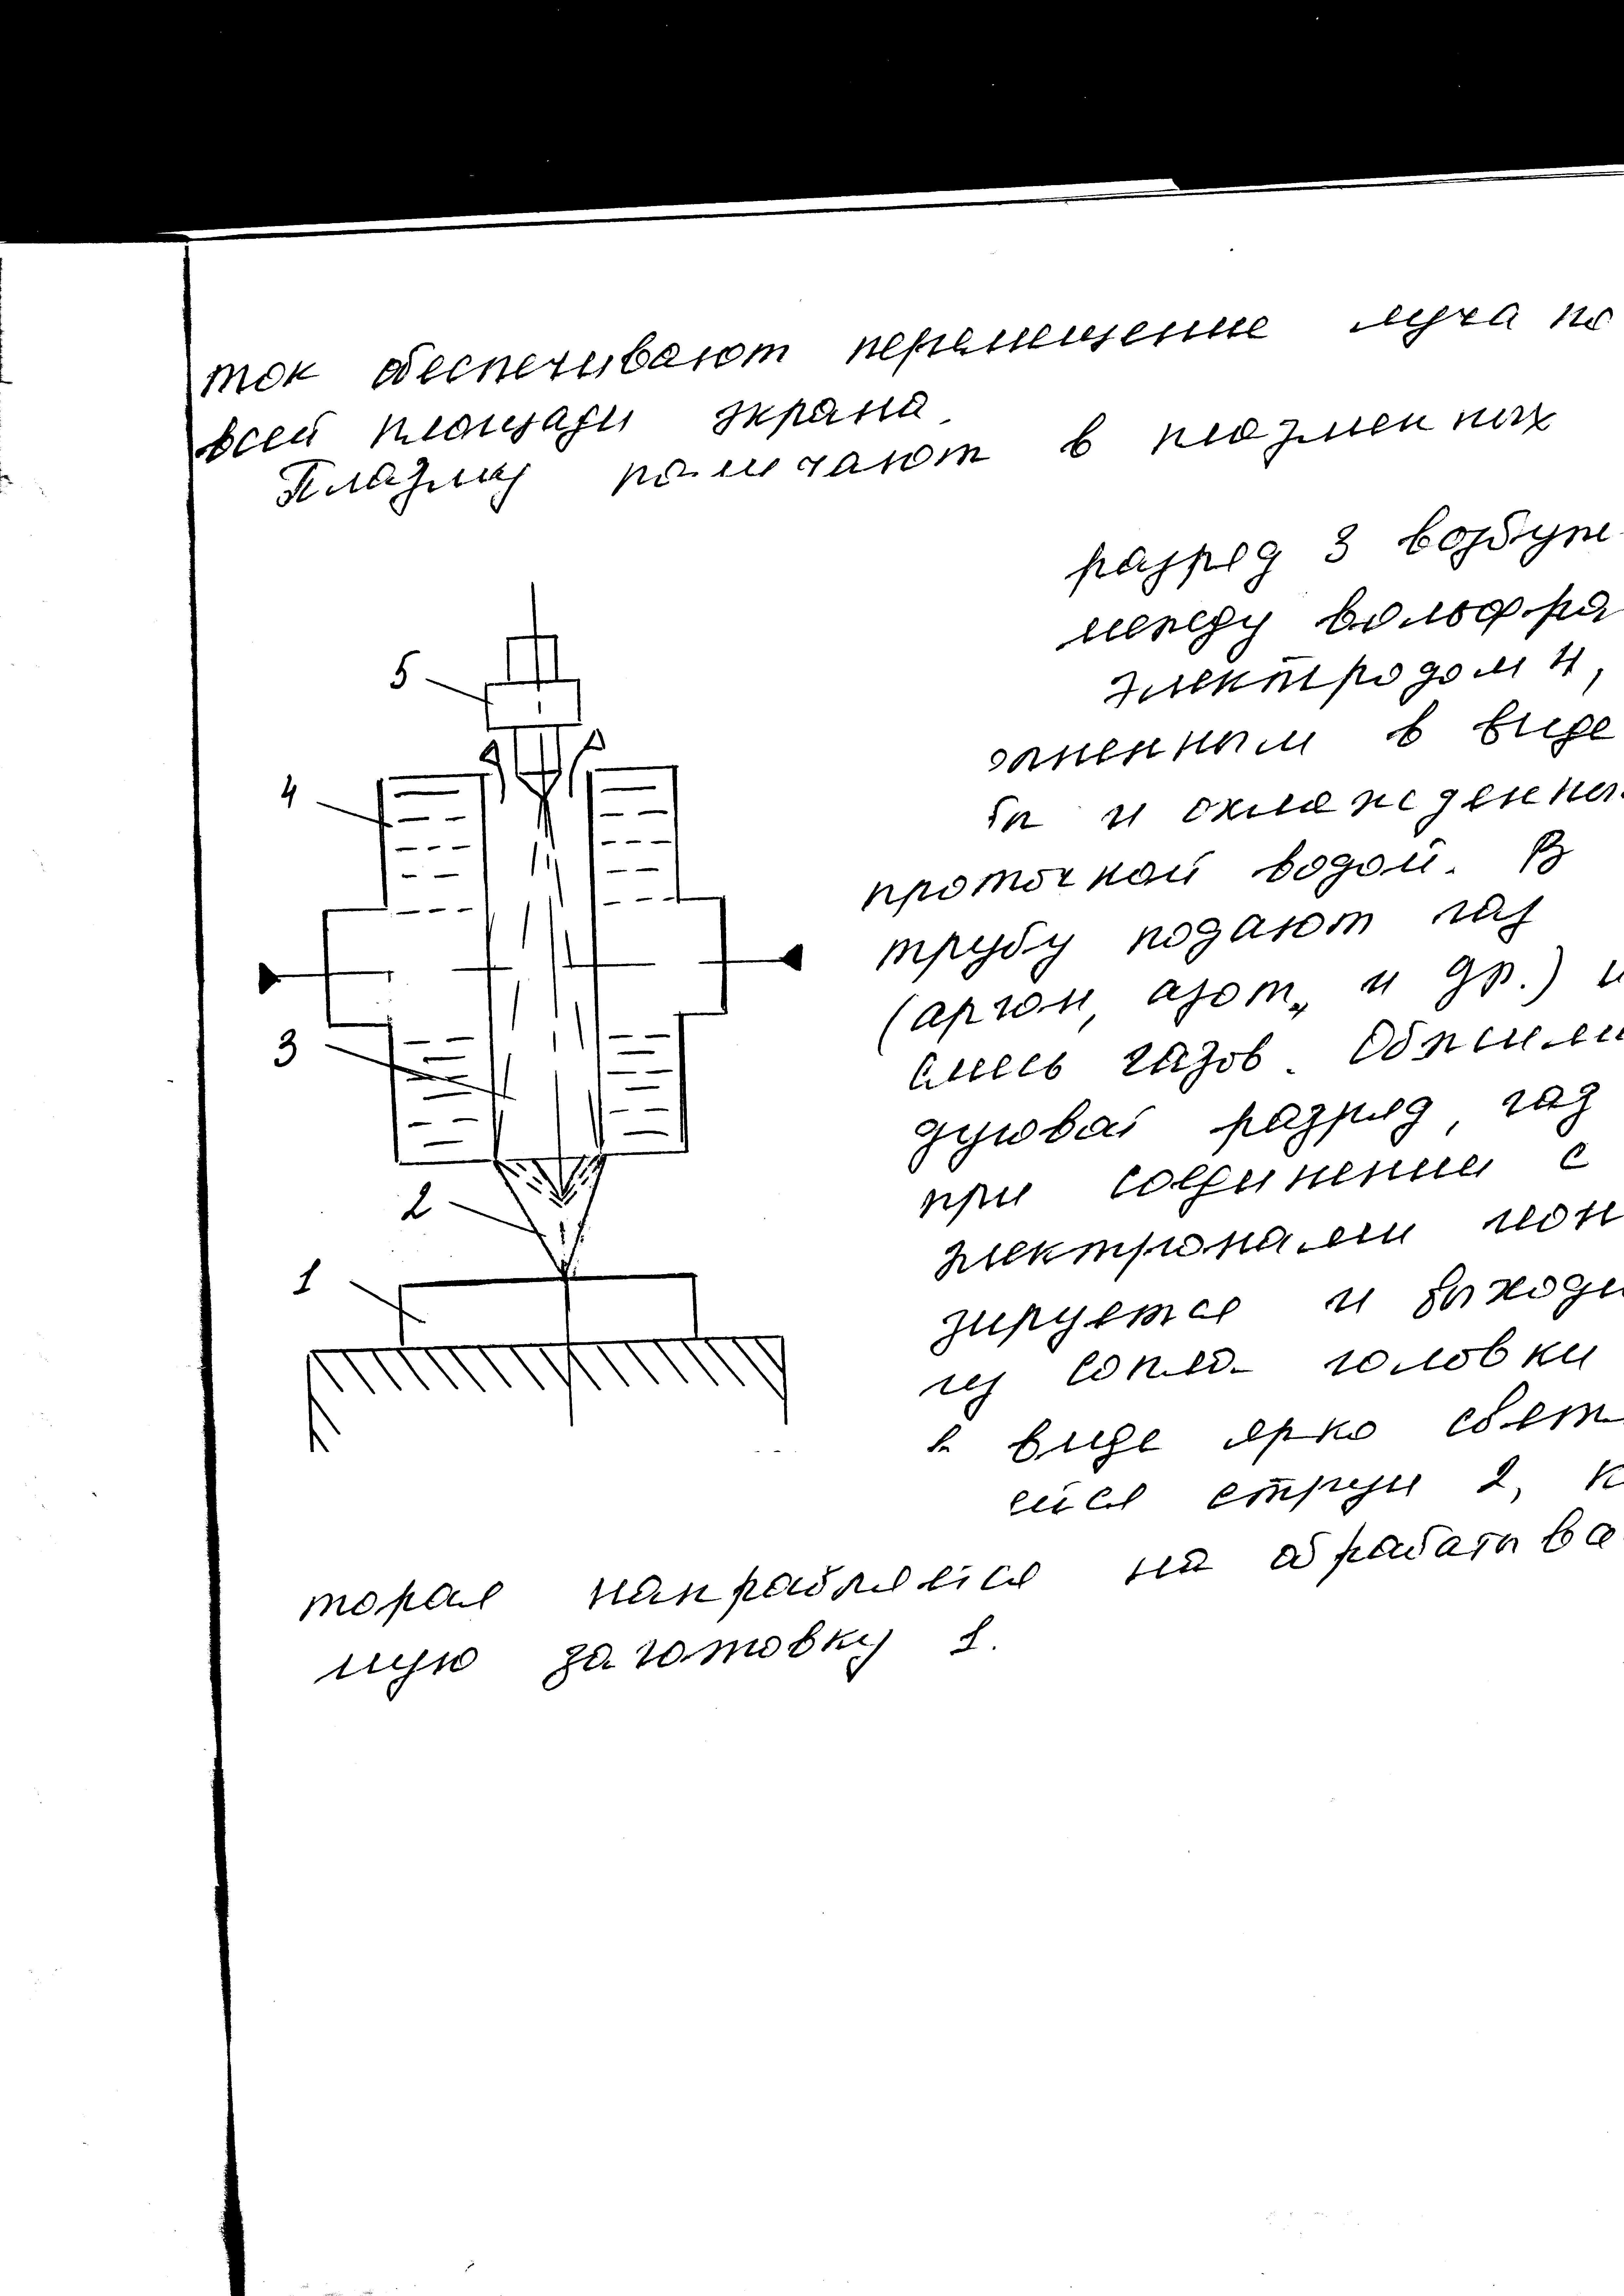 ток обеспечивают перемещение луча по
всей площади экрана.
Плазму получают в плазменных
разряд 3 возбуж
между вольфра
5
электродом 4,
олненным в виде
4
бы и охлажденны
проточной водой. В
трубу подают газ
(аргон, азот, и др.) и
3
смесь газов. Обжим
дуговой разряд, газ
при соединении с
2
электронами иони
1
зируется и выходи
из сопла головки
в виде ярко свет
ейся струи 2, к
торая направляется на обрабатыва
мую заготовку 1.